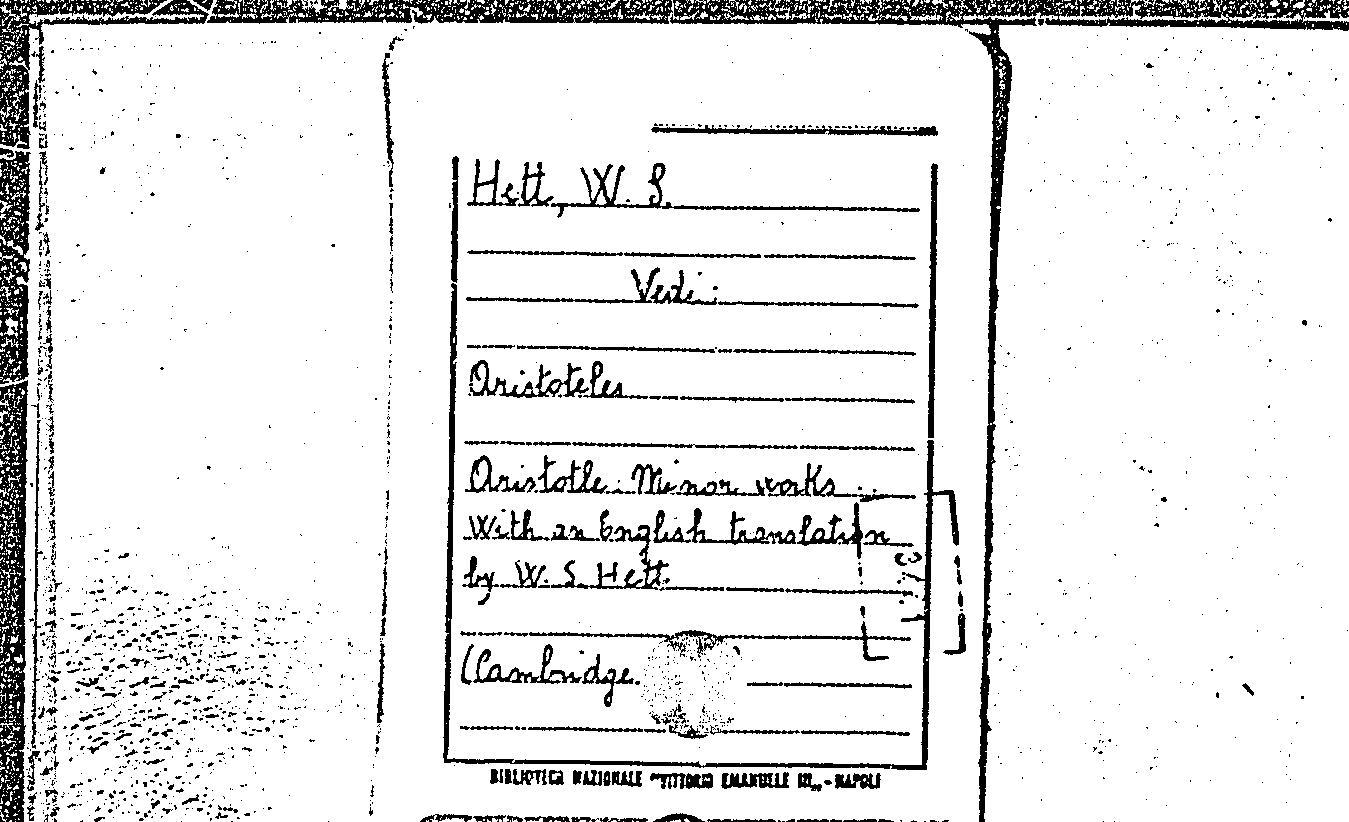 Hett, W. S.
Vedi:
Aristoteles
Aristotle. Minor works ...
With an English translation
by W. S. Hett.
(Cambridge.
BIBLIOTECA NAZIONALE "VITTORIO EMANUELE III„ - NAPOLI